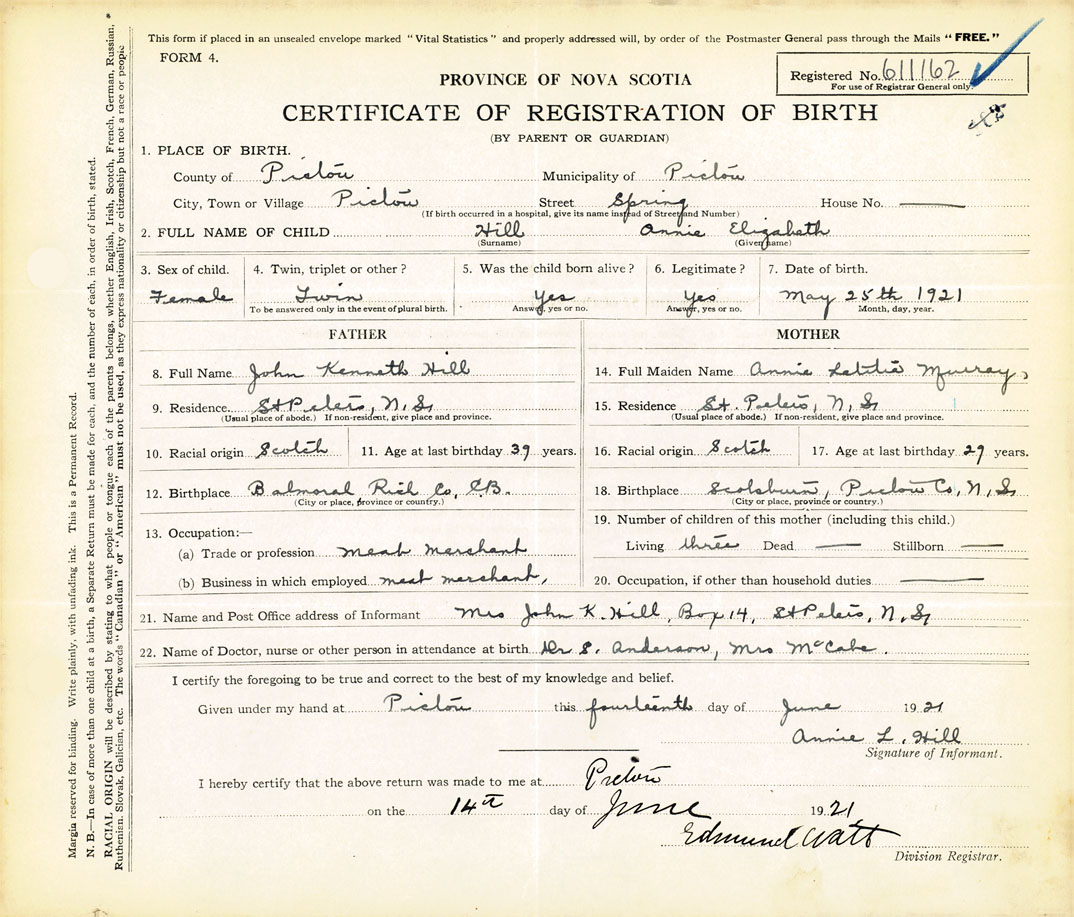 This form if placed in an unsealed envelope marked "Vital Statistics" and properly addressed will, by order of the Postmaster General pass through the Mails "FREE."
FORM 4.
Registered No. 611162
For use of Registrar General only.
PROVINCE OF NOVA SCOTIA
CERTIFICATE OF REGISTRATION OF BIRTH
(BY PARENT OR GUARDIAN)
1. PLACE OF BIRTH.
County of Pictou Municipality of Pictou
City, Town or Village Pictou Street Spring House No. ———
(If birth occurred in a hospital, give its name instead of Street and Number)
2. FULL NAME OF CHILD Hill Annie Elizabeth
(Surname) (Given name)
3. Sex of child. 4. Twin, triplet or other? 5. Was the child born alive? 6. Legitimate? 7. Date of birth.
Female Twin Yes Yes May 25th 1921
To be answered only in the event of plural birth. Answer, yes or no. Answer, yes or no. Month, day, year.
FATHER MOTHER
8. Full Name John Kenneth Hill
9. Residence St Peters, N.S.
(Usual place of abode.) If non-resident, give place and province.
10. Racial origin Scotch 11. Age at last birthday 39 years.
12. Birthplace Balmoral Rich Co, C.B.
(City or place, province or country.)
13. Occupation:—
(a) Trade or profession meat merchant
(b) Business in which employed meat merchant,
14. Full Maiden Name Annie Letitia Murray,
15. Residence St. Peters, N,S
(Usual place of abode.) If non-resident, give place and province.
16. Racial origin Scotch 17. Age at last birthday 29 years.
18. Birthplace Scotsburn, Pictou Co, N,S
(City or place, province or country.)
19. Number of children of this mother (including this child.)
Living three Dead —— Stillborn ——
20. Occupation, if other than household duties ———
21. Name and Post Office address of Informant Mrs John K. Hill, Box 14, St Peters, N.S,
22. Name of Doctor, nurse or other person in attendance at birth Dr S. Anderson, Mrs McCabe.
I certify the foregoing to be true and correct to the best of my knowledge and belief.
Given under my hand at Pictou this fourteenth day of June 1921
Annie L. Hill
Signature of Informant.
I hereby certify that the above return was made to me at Pictou
on the 14th day of June 1921
Edmund Watt
Division Registrar.
Margin reserved for binding. Write plainly, with unfading ink. This is a Permanent Record.
N. B.—In case of more than one child at a birth, a Separate Return must be made for each, and the number of each, in order of birth, stated.
RACIAL ORIGIN will be described by stating to what people or tongue each of the parents belongs, whether English, Irish, Scotch, French, German, Russian,
Ruthenian, Slovak, Galician, etc. The words "Canadian" or "American" must not be used, as they express nationality or citizenship but not a race or people